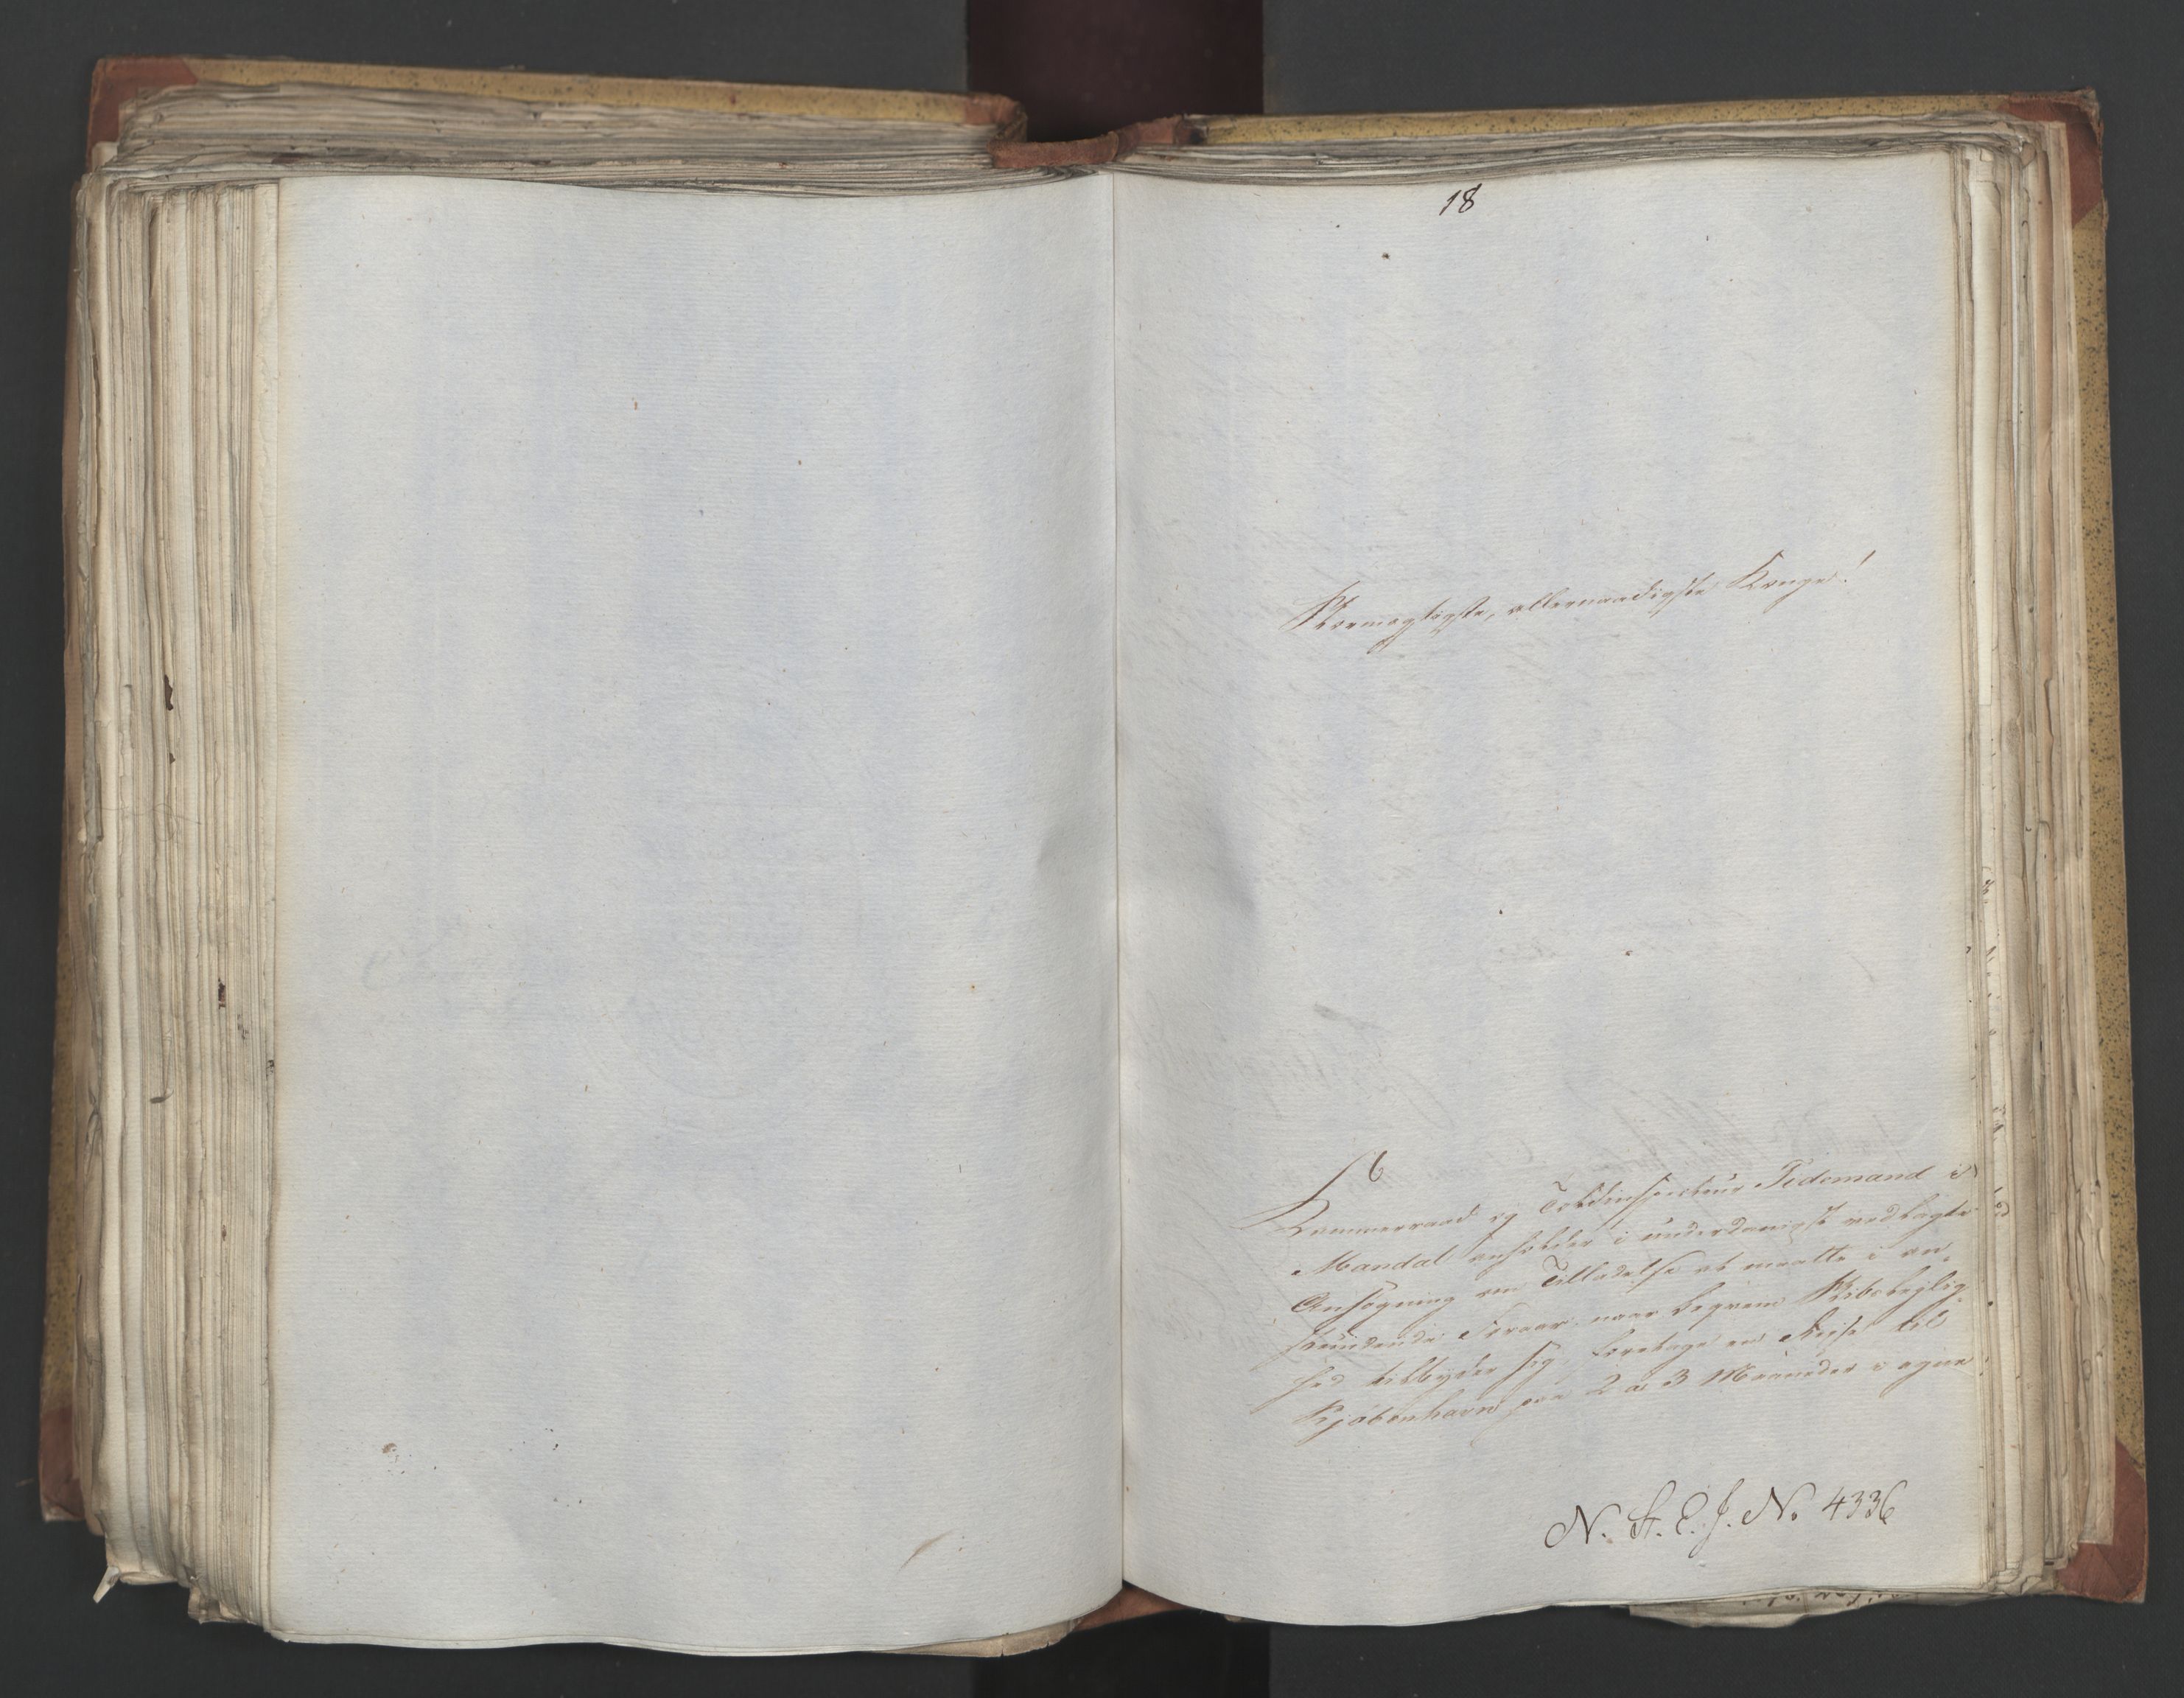 18
Stormægtigste, allernaadigste Konge!
Kammerraad og Toldinspecteur Tidemand i
Mandal anholder i underdanigst vedlagte
Ansøgning om Tilladelse at maatte i an-
stundende Foraar, naar beqvem Skibsleylig-
hed tilbyder sig, foretage en Reise til
Kjøbenhavn paa 2 a 3 Maaneder i egne
N. St. E. J. No 4336